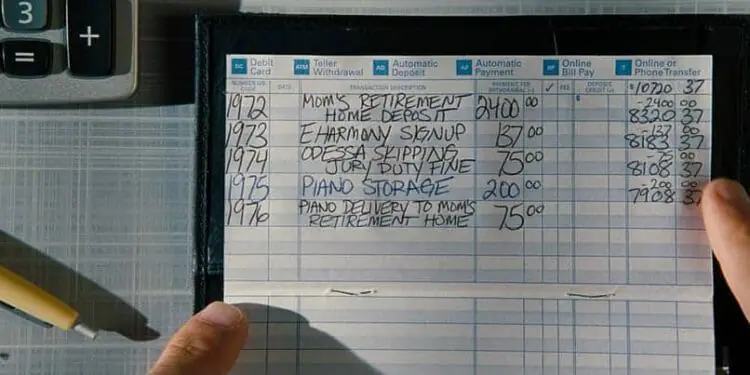 3
=
+
DC Debit Card
ATM Teller Withdrawal
AD Automatic Deposit
AP Automatic Payment
BP Online Bill Pay
T Online or Phone Transfer
NUMBER OR CODE DATE TRANSACTION DESCRIPTION PAYMENT FEE WITHDRAWAL (-) ✓ FEE DEPOSIT CREDIT (+) $ 10720 37
1972 MOM'S RETIREMENT HOME DEPOSIT 2400 00 $ -2400 00
8320 37
1973 EHARMONY SIGNUP 137 00 -137 00
8183 37
1974 ODESSA SKIPPING JURY DUTY FINE 75 00 -75 00
8108 37
1975 PIANO STORAGE 200 00 -200 00
7908 37
1976 PIANO DELIVERY TO MOM'S RETIREMENT HOME 75 00